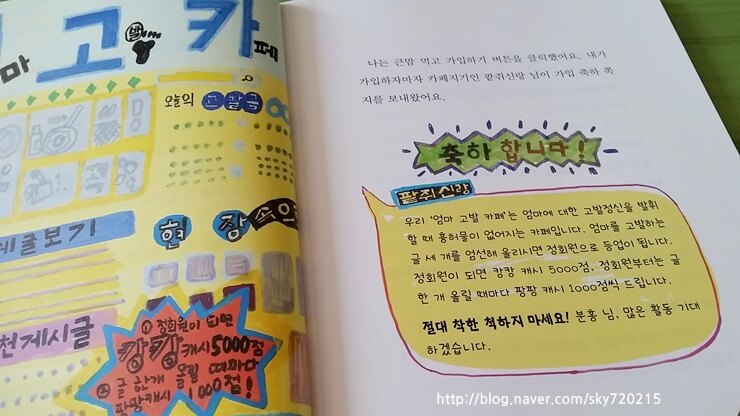 마 고발 카페
오늘의 고발글
게글보기
현장 속으
천게시글
① 정회원이 되면
캉캉 캐시 5000점
② 글 한개 올릴 때마다
팡팡캐시 1000점!
나는 큰맘 먹고 가입하기 버튼을 클릭했어요. 내가
가입하자마자 카페지기인 팥쥐신랑 님이 가입 축하 쪽
지를 보내왔어요.
축하합니다!
팥쥐신랑
우리 '엄마 고발 카페'는 엄마에 대한 고발정신을 발휘
할 때 흉허물이 없어지는 카페입니다. 엄마를 고발하는
글 세 개를 엄선해 올리시면 정회원으로 등업이 됩니다.
정회원이 되면 캉캉 캐시 5000점, 정회원부터는 글
한 개 올릴 때마다 팡팡 캐시 1000점씩 드립니다.
절대 착한 척하지 마세요! 분홍 님, 많은 활동 기대
하겠습니다.
http://blog.naver.com/sky720215